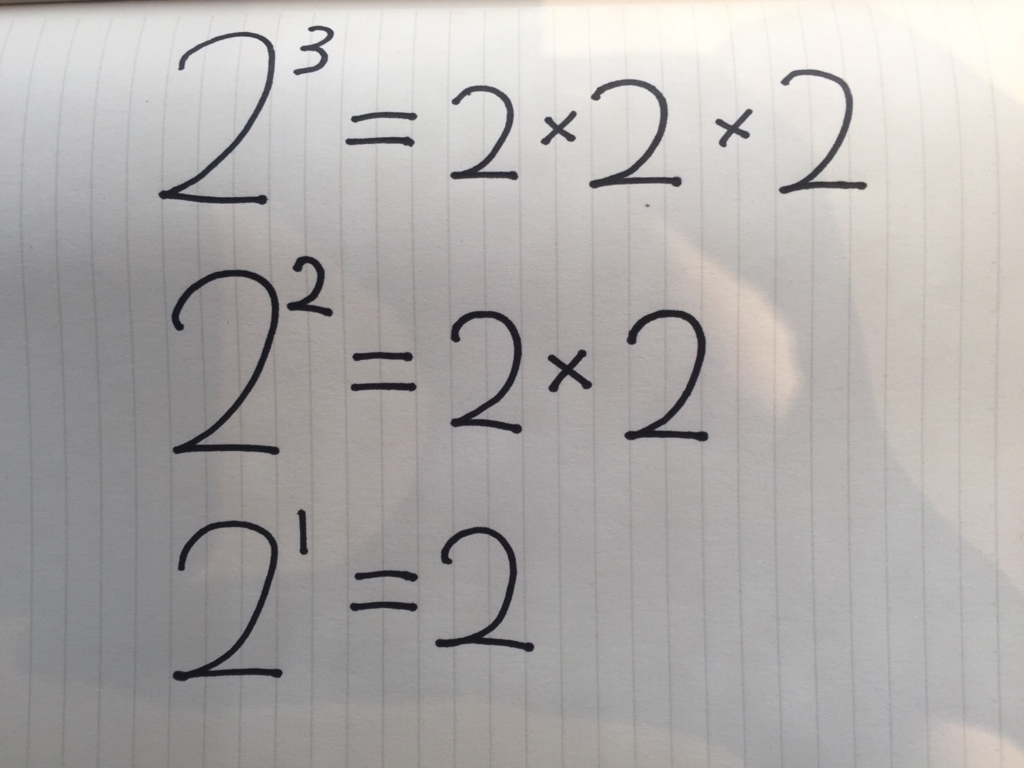 2³ = 2 × 2 × 2
2² = 2 × 2
2¹ = 2